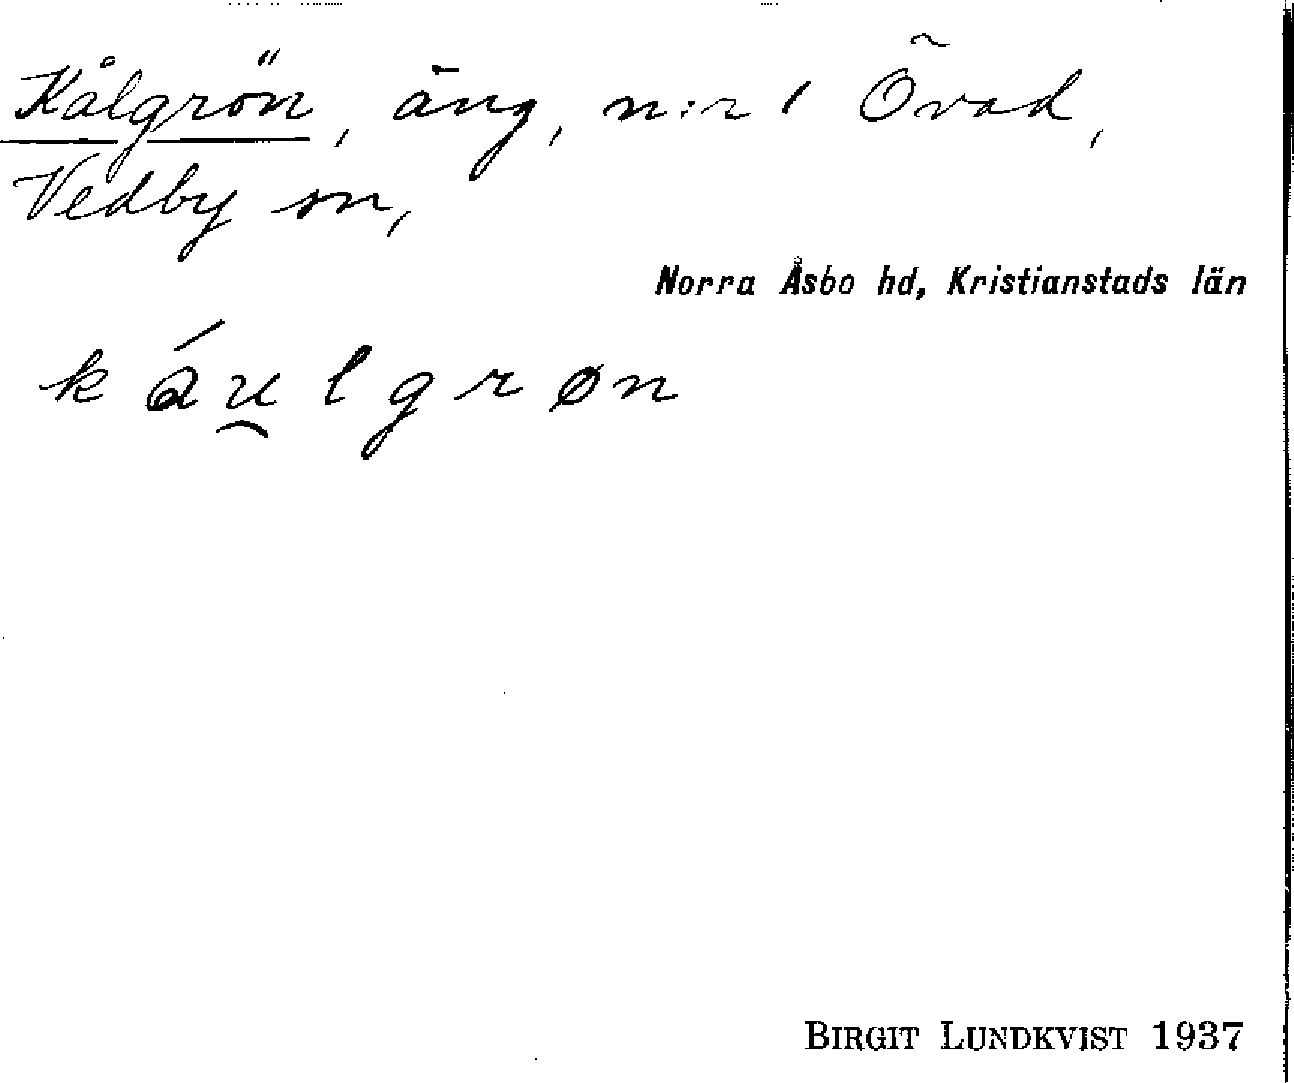 Kålgrön, äng, n:r 1 Övad,
Vedby sn,
Norra Åsbo hd, Kristianstads län
káu̯lgrøn
BIRGIT LUNDKVIST 1937